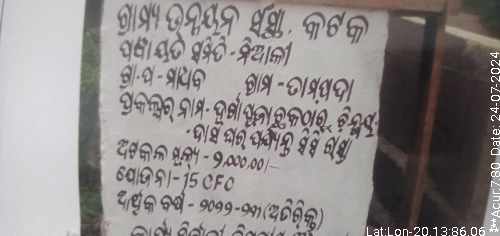 ଗ୍ରାମ୍ୟ ଉନ୍ନୟନ ସଂସ୍ଥା, କଟକ
ପଞ୍ଚାୟତ ସମିତି - ନିଆଳୀ
ଗ୍ରା.ପ - ମାଧବ ଗ୍ରାମ - ତାମ୍ପଦା
ପ୍ରକଳ୍ପର ନାମ - ଦୁର୍ଗା ପୂଜା ଛକଠାରୁ ଚିନ୍ମୟ
- ଦାସ ଘର ପର୍ଯ୍ୟନ୍ତ ସିସି ରାସ୍ତା
ଅଟକଳ ମୂଲ୍ୟ - ୨,୦୦,୦୦୦/-
ଯୋଜନା - 15 CFC
ଆର୍ଥିକ ବର୍ଷ - ୨୦୨୨-୨୩ (ଅତିରିକ୍ତ)
Lat:Lon-20.13:86.06
**Acur:7.80 Date: 24-07-2024